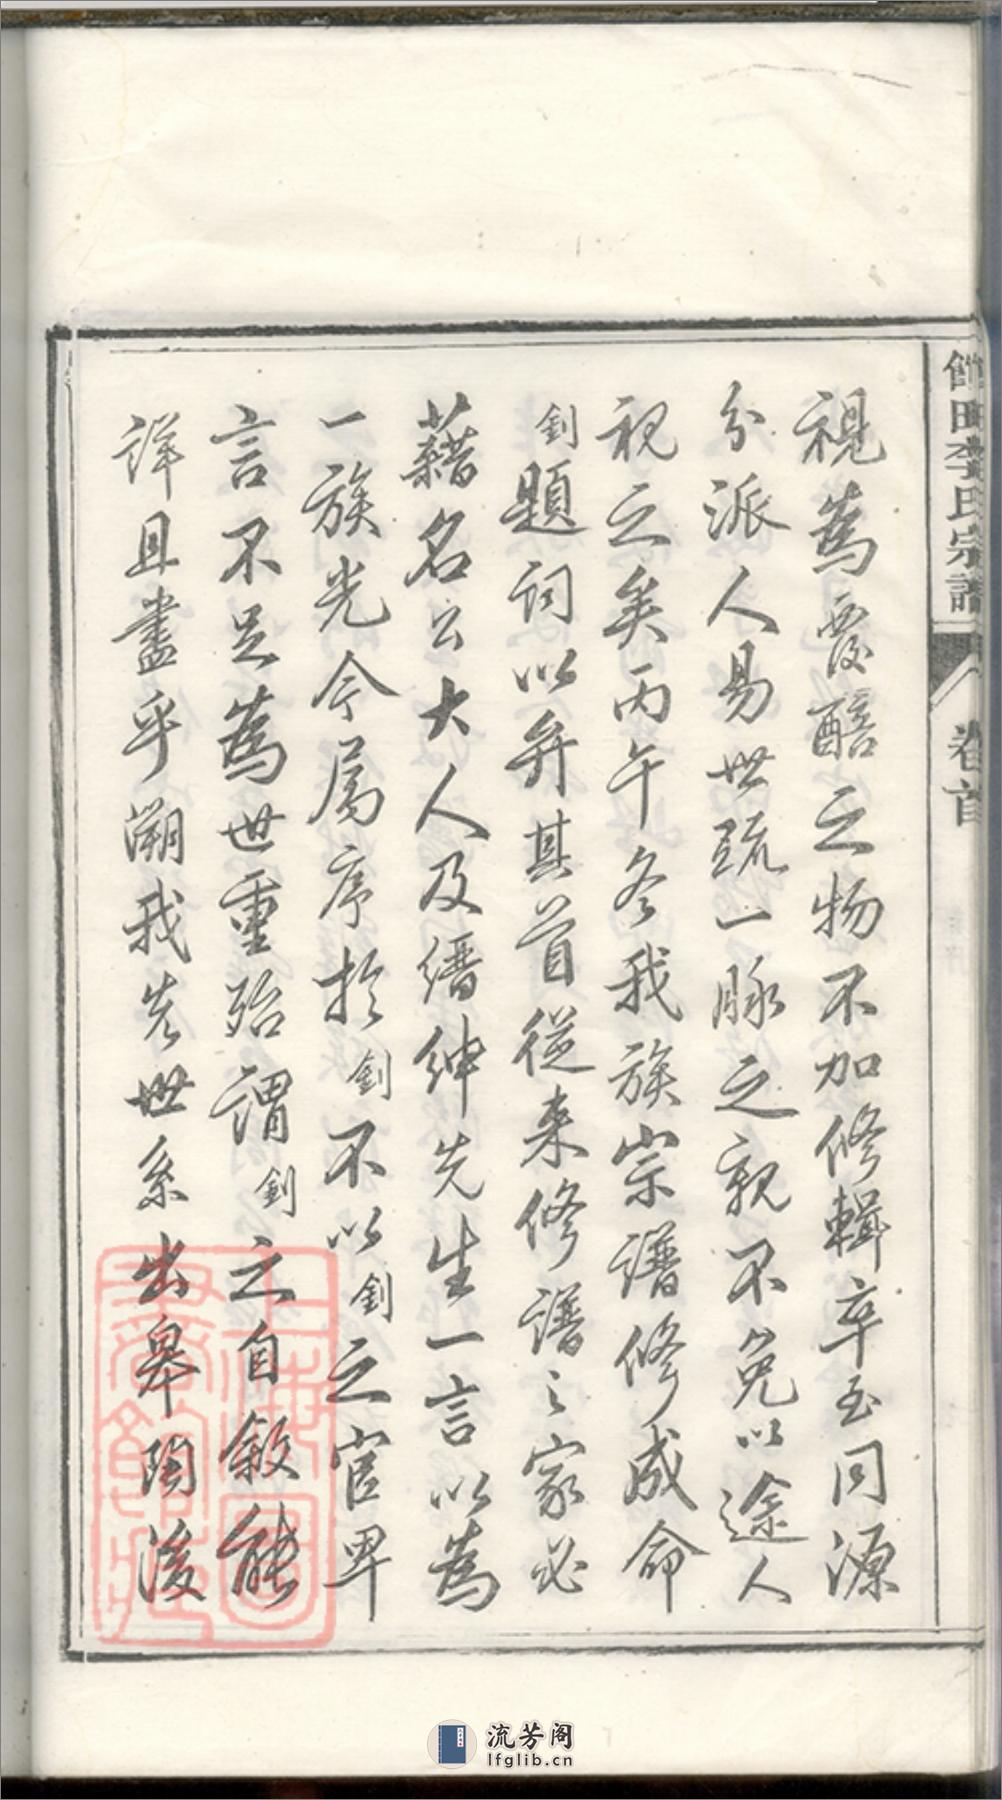 田李氏宗譜 卷首
視為覆醅之物不加修輯卒至同源
分派人易世疏一脉之親不免以途人
視之矣丙午冬我族宗譜修成命
釗題詞以弁其首從来修譜之家必
藉名公大人及縉紳先生一言以為
一族光今属序於釗不以釗之官卑
言不足為世重殆謂釗之自敘能
詳且盡乎溯我先世系出皋陶後
流芳阁
lfglib.cn